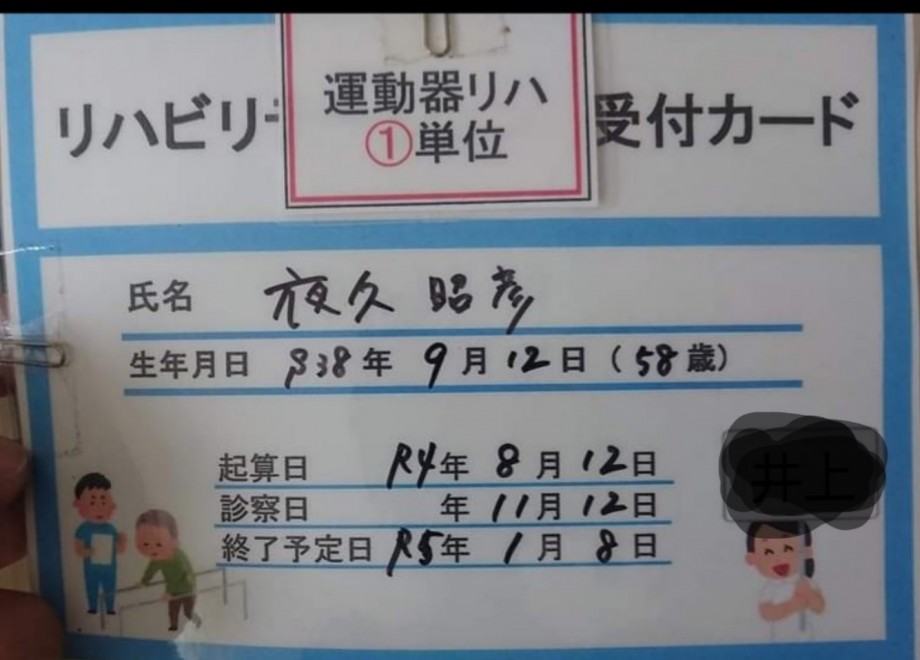 運動器リハ
①単位
リハビリ
受付カード
氏名 夜久 昭彦
生年月日 S38年 9月12日(58歳)
起算日 R4年 8月12日
診察日 年 11月12日
終了予定日 R5年 1月 8日
井上